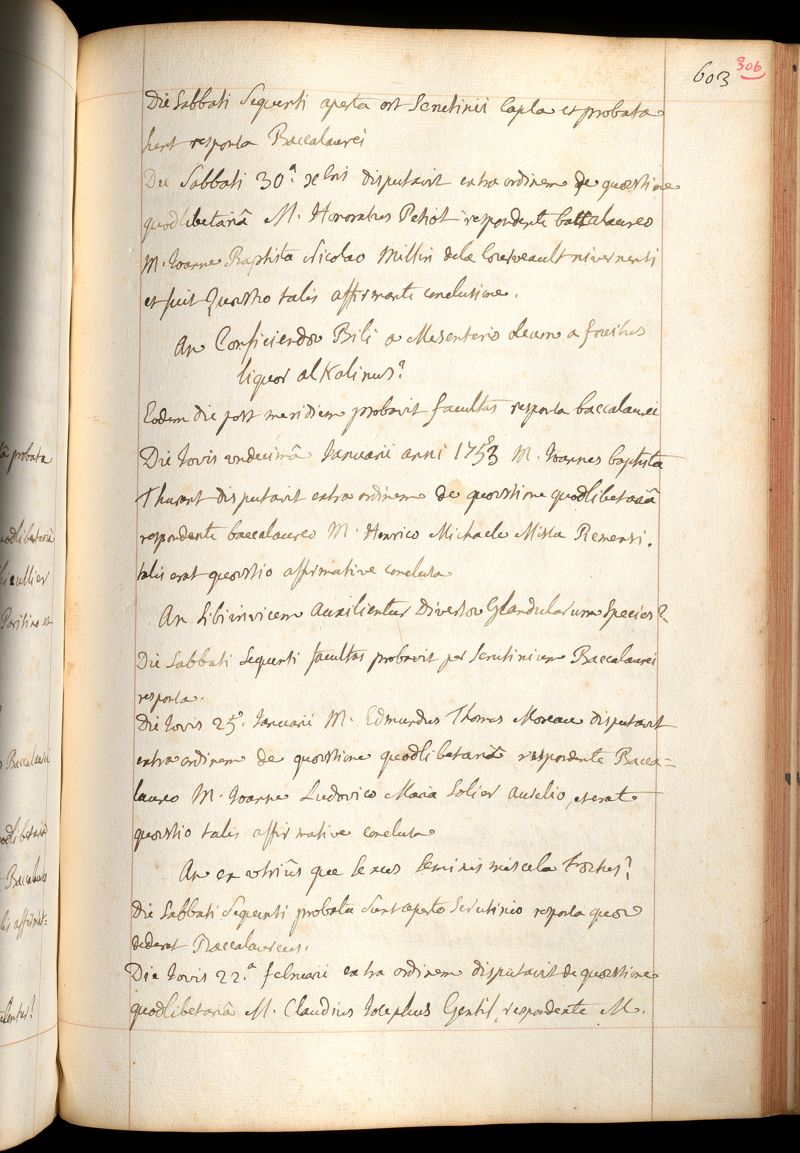 603 306
Die Sabbati Sequenti aperta est Scrutinii Capsa et probata
sunt responsa Baccalaurei
Die Sabbati 30.ª Xbris disputavit extra ordinem de quæstione
quodlibetariâ M. Honoratus Petiot respondente baccalaureo
M. Joanne Baptista Nicolao Millin de la Courveault nivernensi
et fuit Quæstio talis affirmante conclusione.
An Conficiendæ Bili a Mesenterio oleum a fœcibus
liquor alkalinus?
Eodem die post meridiem probavit facultas responsa baccalaurei
Die Jovis undecimâ Januarii anni 1753 M. Joannes baptista
Thurant disputavit extra ordinem de quæstione quodlibetariâ
respondente baccalaureo M. Henrico Michaele Missa Remensi.
talis erat quæstio affirmative conclusa
An sibi invicem auxilientur Diversæ Glandularum Species?
Die Sabbati Sequenti facultas probavit per Scrutinium Baccalaurei
responsa.
Die Jovis 25ª Januarii M. Edmundus Thomas Moreau disputavit
extra ordinem de quæstione quodlibetariâ respondente Bacca=
laureo M. Joanne Ludovico Maria Solier Aurelio, et erat
quæstio talis affirmative conclusa
An ex utriûsque Sexus Seminis miscela Fœtus?
Die Sabbati Sequenti probata sunt aperto Scrutinio responsa quæ
dederat Baccalaureus.
Die Jovis 22.ª februarii extra ordinem disputavit de quæstione
quodlibetariâ M. Claudius Josephus Gentil, respondente M.